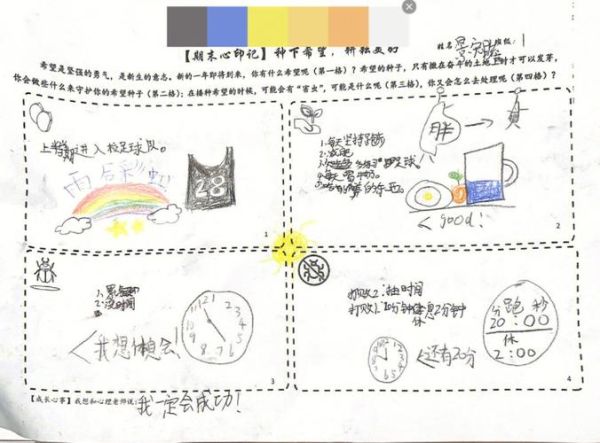 【期末心印记】种下希望，耕耘美好
姓名 班级：1
希望是坚强的勇气，是新生的意志。新的一年即将到来，你有什么希望呢（第一格）？希望的种子，只有撒在奋斗的土地上时才可以发芽，
你会做些什么来守护你的希望种子（第二格）；在播种希望的时候，可能会有“害虫”，可能是什么呢（第三格），你又会怎么去处理呢（第四格）？
进入校足球队。
雨后彩虹！
28
1
1.每天坚持
2.减肥
足球。
4.每天喝牛奶。
胖
good！
2
1.累
2.没时间
我想休息会！
12 1 2 3 4 5 6 7 8 9
3
打败2：抽时间
打败1：20分钟休息2分钟
还有20分
分 跑 秒
20：00
休
2：00
4
【成长心事】我想和心理老师说：我一定会成功！